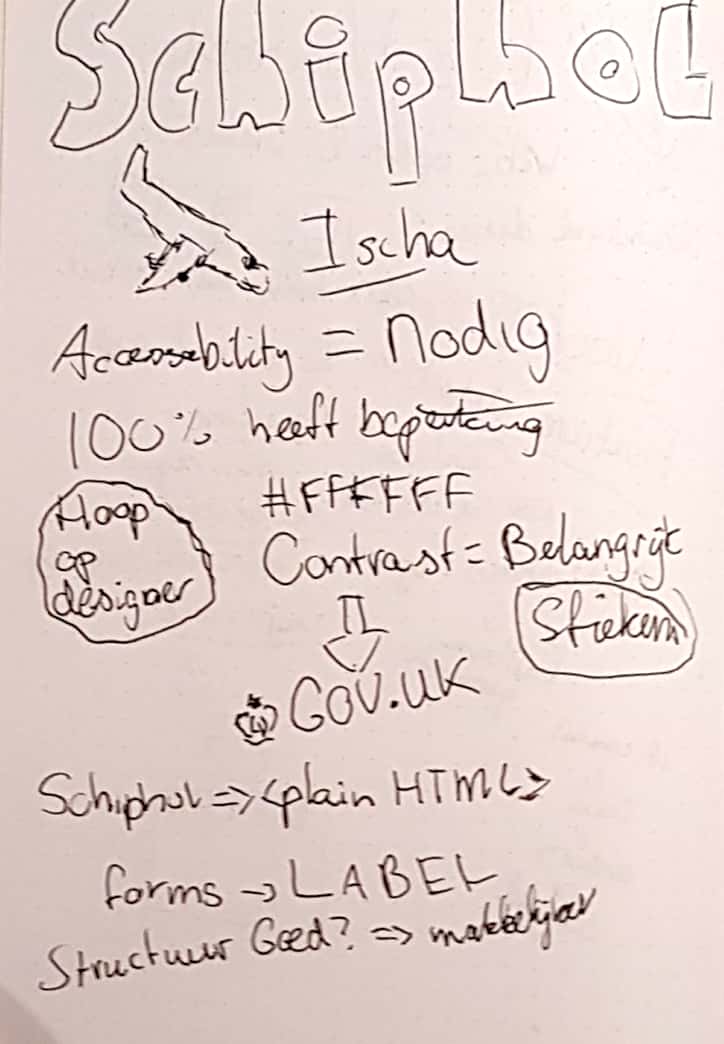 Schiphol
Ischa
Accessebility = nodig
100% heeft beperking
Hoop
op
designer
#FFFFFF
Contrast = Belangrijk
Stiekem
GOV.UK
Schiphol => <plain HTML>
forms -> LABEL
Structuur Goed? =>